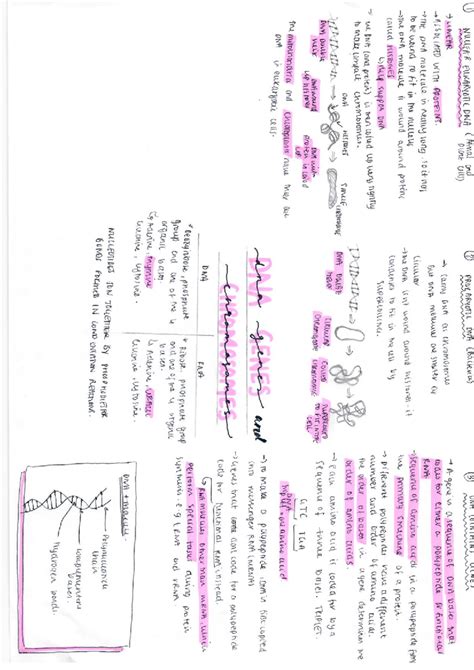 ① NUCLEAR EUKARYOTIC DNA (Animal and
Plant Cells)
→ LINEAR
→ ASSOCIATED WITH PROTEINS.
→ The DNA molecule is really long, so it has
to be wound to fit in the nucleus
→ The DNA molecule is wound around proteins
called HISTONES
↳ Help support DNA
→ The DNA (and protein) is then coiled up very tightly
to make compact chromosomes.
DNA double
helix
DNA
HISTONES
DNA wound
up histones
DNA and
protein is coiled
The mitochondria and chloroplasts have their own
DNA in eukaryotic cells.
② PROKARYOTIC DNA (Bacteria)
→ Carry DNA as chromosomes
but DNA molecules are shorter &
circular
→ The DNA isn't wound around histones - it
condenses to fit in the cell by
supercoiling.
DNA double
helix
CIRCULAR
Chromosome
COILED
chromosome
SUPERCOILED
TO FIT INTO
CELL
DNA GENES and
CHROMOSOMES
dna genes and
chromosomes
DNA
• Deoxyribose, phosphate
group and one of the 4
organic bases
↳ Adenine, Thymine
Guanine, Cytosine.
RNA
• Ribose, phosphate group
and one of the 4 organic
bases.
↳ Adenine, URACIL
Guanine, Cytosine.
NUCLEOTIDES JOIN TOGETHER BY PHOSPHODIESTER
BONDS FORMED IN CONDENSATION REACTIONS.
③
→ A gene is a sequence of DNA bases that
codes for either a polypeptide or functional
RNA
→ Sequence of amino acids in a polypeptide forms
the primary structure of a protein.
→ Different polypeptides have a different
number and order of amino acids.
The order of bases in a gene determines the
order of amino acids.
→ Each amino acid is coded for by a
sequence of three bases: TRIPLET
GTC TGA
DNA
triplet = one amino acid
→ To make a polypeptide, DNA is first copied
into messenger RNA (mRNA)
→ Genes that don't code for a polypeptide
code for functional RNA instead.
↳ RNA molecules other than mRNA, which
perform special tasks during protein
synthesis e.g. tRNA and rRNA
DNA molecule
Polynucleotide
chain
Complementary
bases
Hydrogen bonds.